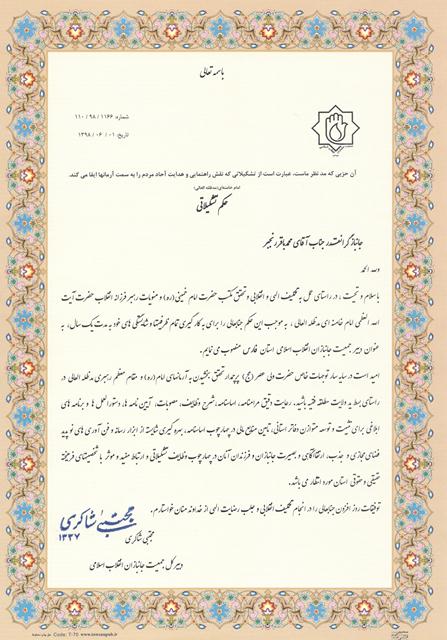 باسمه تعالی
شماره: ۱۱۶۶ / ۹۸ / ۱۱۰
تاریخ: ۰۱ / ۰۶ / ۱۳۹۸
آن حزبی که مد نظر ماست، عبارت است از تشکیلاتی که نقش راهنمایی و هدایت آحاد مردم را به سمت آرمانها ایفا می کند.
امام خامنه‌ای(مدظله العالی)
حکم تشکیلاتی
جانباز گرانقدر جناب آقای محمدباقر رنجبر
وله الحمد
با سلام و تحیت، در راستای عمل به تکلیف الهی و انقلابی و تحقق مکتب حضرت امام خمینی (ره) و منویات رهبر فرزانه انقلاب حضرت آیت
الله العظمی امام خامنه ای مدظله العالی، به موجب این حکم جنابعالی را برای به کارگیری تمام ظرفیتها و شایستگی های خود به مدت یک سال، به
عنوان دبیر جمعیت جانبازان انقلاب اسلامی استان فارس منصوب می نمایم.
امید است در سایه سار توجهات خاص حضرت ولی عصر (عج) پرچمدار تحقق بخشیدن به آرمانهای امام (ره) و مقام معظم رهبری مدظله العالی در
راستای بسط ید ولایت مطلقه فقیه باشید. رعایت دقیق مرامنامه، اساسنامه، شرح وظایف، مصوبات، آیین نامه ها، دستورالعمل ها و برنامه های
ابلاغی برای تثبیت و توسعه متوازن دفاتر استانی، تامین منابع مالی در چهارچوب اساسنامه، بهره گیری شایسته از ابزار رسانه و فن آوری های نوپدید
فضای مجازی و جذب، ارتقا آگاهی و بصیرت جانبازان و فرزندان آنان در چهارچوب وظایف تشکیلاتی و ارتباط مفید و موثر با شخصیتهای فرهیخته
حقیقی و حقوقی استان مورد انتظار می باشد.
توفیقات روز افزون جنابعالی را در انجام تکلیف انقلابی و جلب رضایت الهی از خداوند منان خواستارم.
مجتبی شاکری
۱۳۳۷
مجتبی شاکری
دبیر کل جمعیت جانبازان انقلاب اسلامی
Code: T-70 www.iransapub.ir